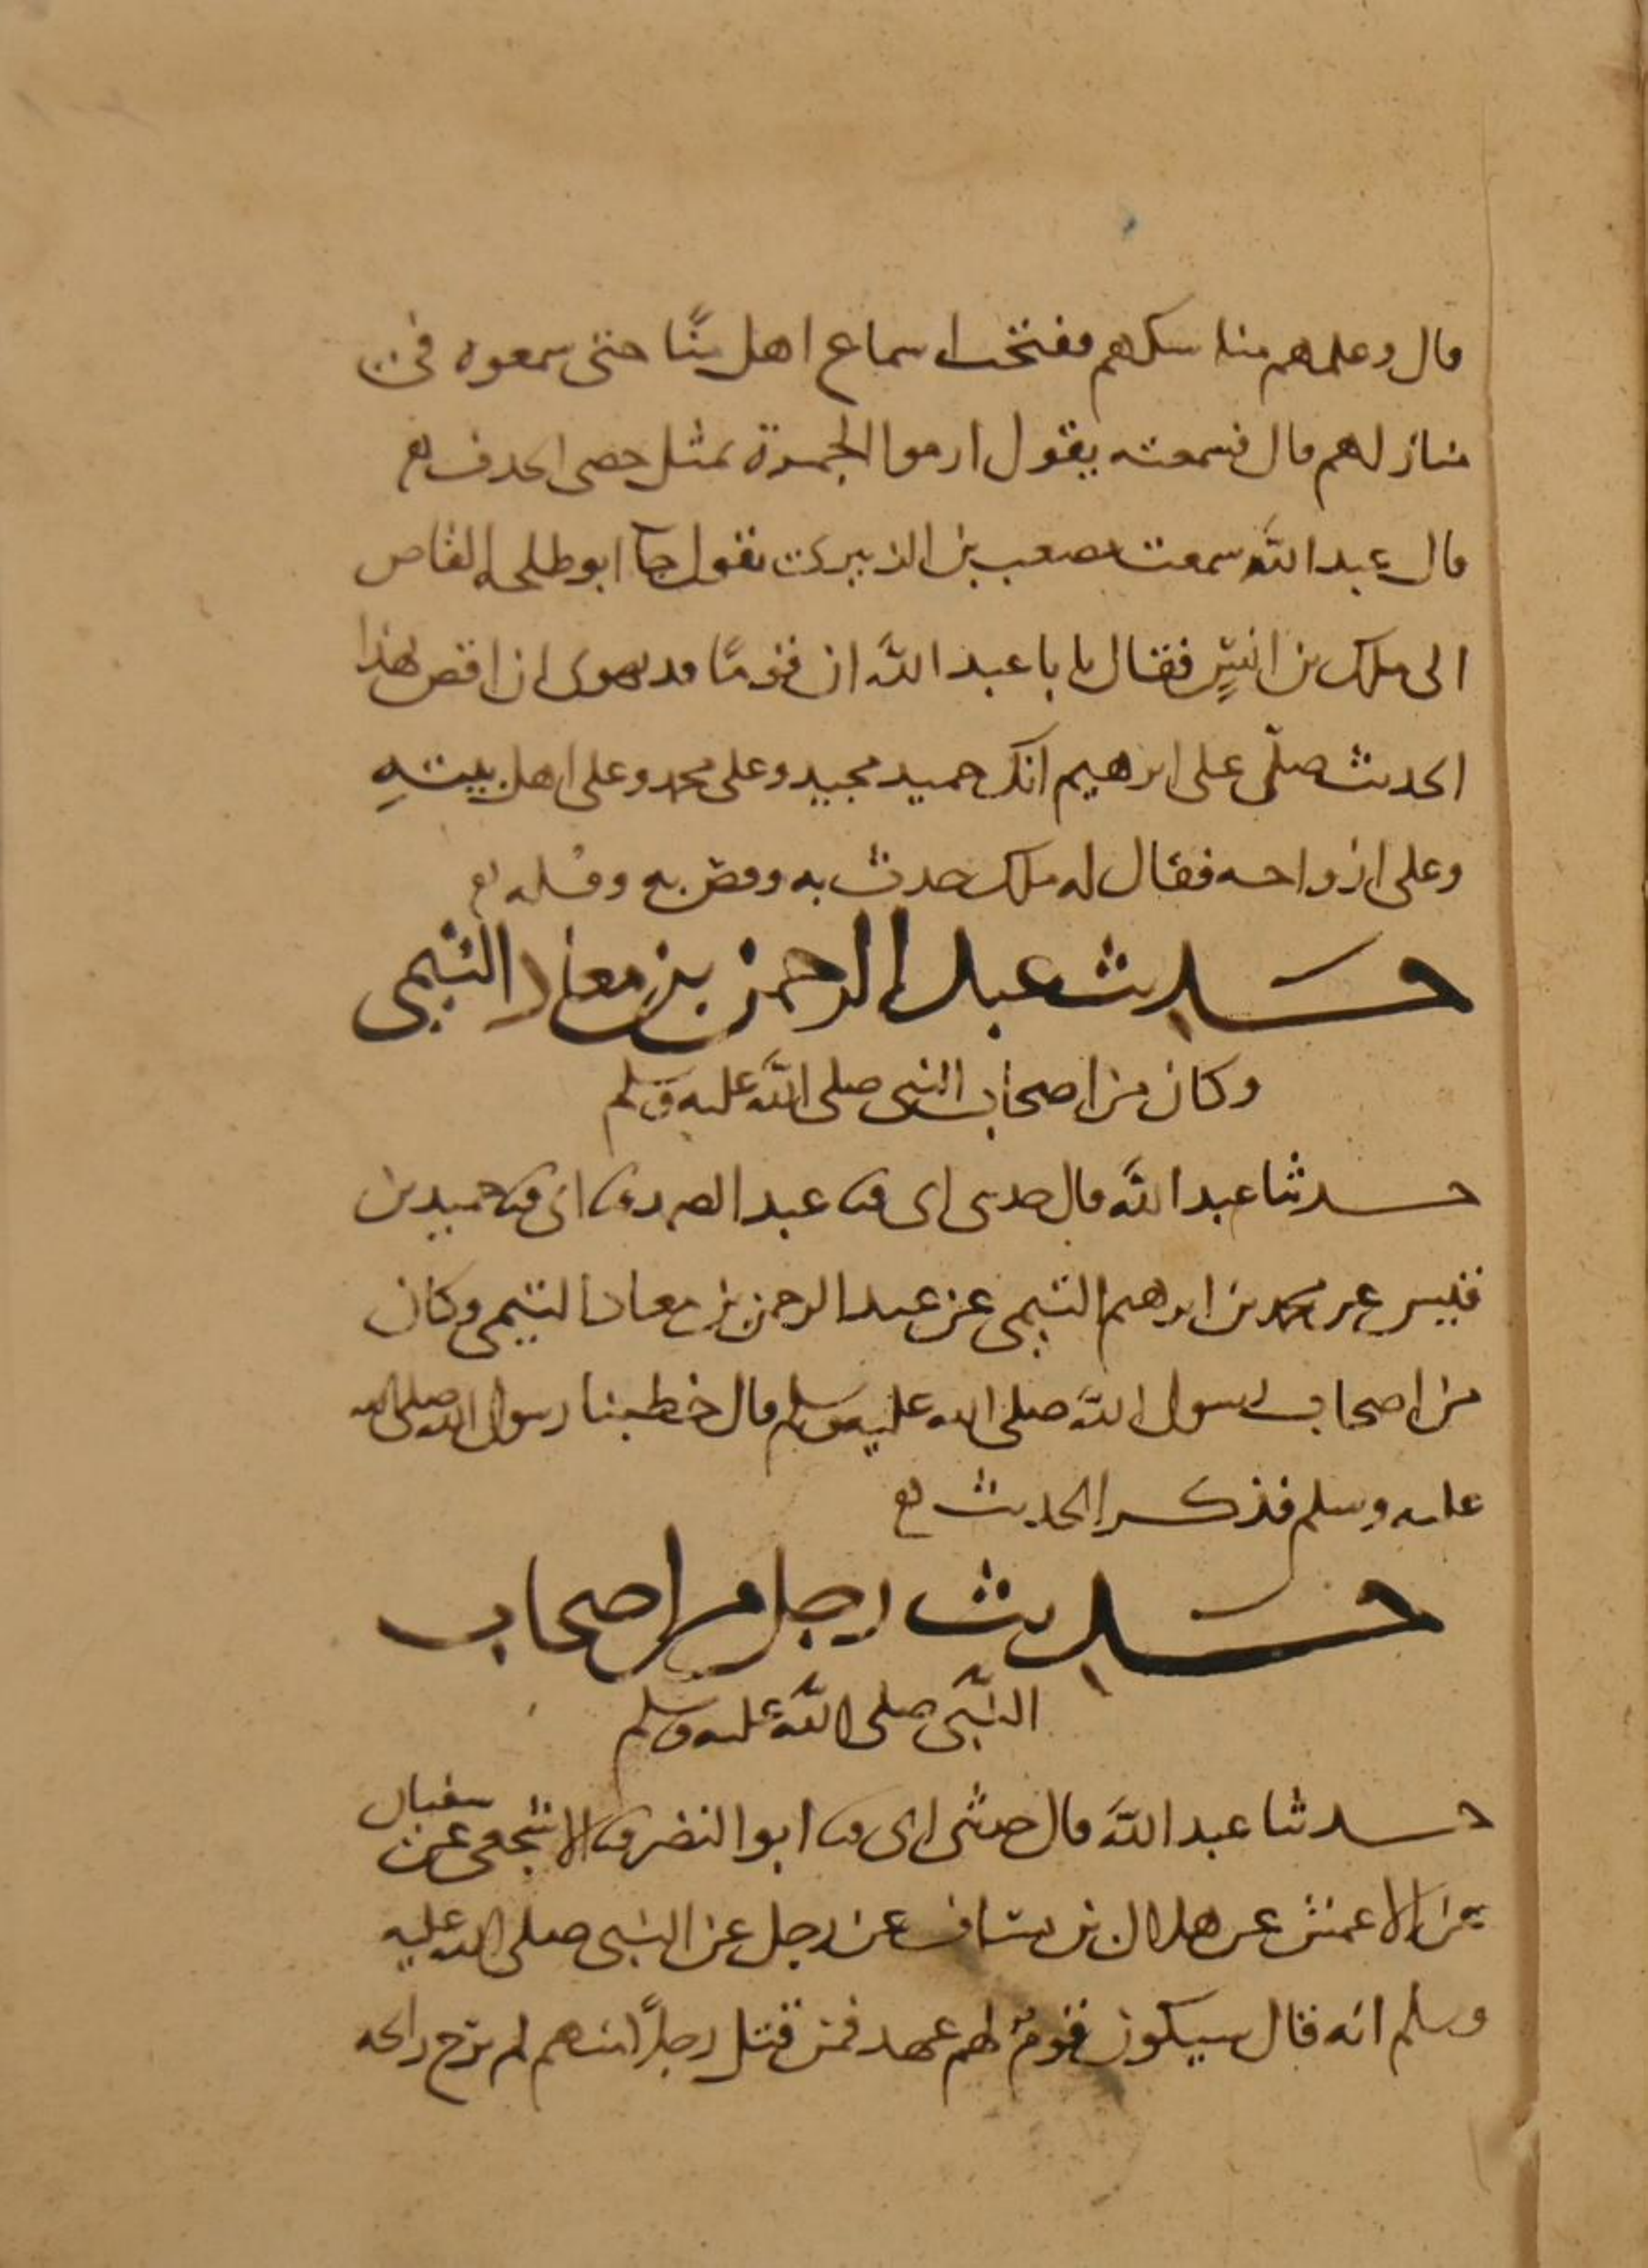 قال وعلمهم مناسكهم ففتحت اسماع اهل منًا حتى سمعوه في
منازلهم قال فسمعته يقول ارموا الجمرة بمثل حصى الخذف
قال عبد الله سمعت مصعب بن الزبيري يقول جآ ابو طلحه القاص
الى ملك بن انسٍ فقال يا با عبد الله ان قومًا قد نهونى ان اقص هذا
الحديث صلّى على ابرهيم انك حميد مجيد وعلى محمد وعلى اهل بيتهِ
وعلى ازواجه فقال له ملك حدث به وقص به وقوله
حديث عبد الرحمن بن معاذ التيمى
وكان من اصحاب النبى صلى الله عليه وسلم
حدثنا عبد الله قال حدثنى ابى ثنا عبد الصمد ثنا ابى ثنا حميد بن
قيس عن محمد بن ابرهيم التيمى عن عبد الرحمن بن معاذ التيمى وكان
من اصحاب رسول الله صلى الله عليه وسلم قال خطبنا رسول الله صلى الله
عليه وسلم فذكر الحديث
حديث رجل من اصحاب
النبّى صلى الله عليه وسلم
حدثنا عبد الله قال حدثنى ابى ثنا ابو النضر ثنا الاشجعى عن سفيان
عن الاعمش عن هلال بن يساف عن رجل عن النبى صلى الله عليه
وسلم انه قال سيكون قومٌ لهم عهد فمن قتل رجلًا منهم لم يرح رائحه